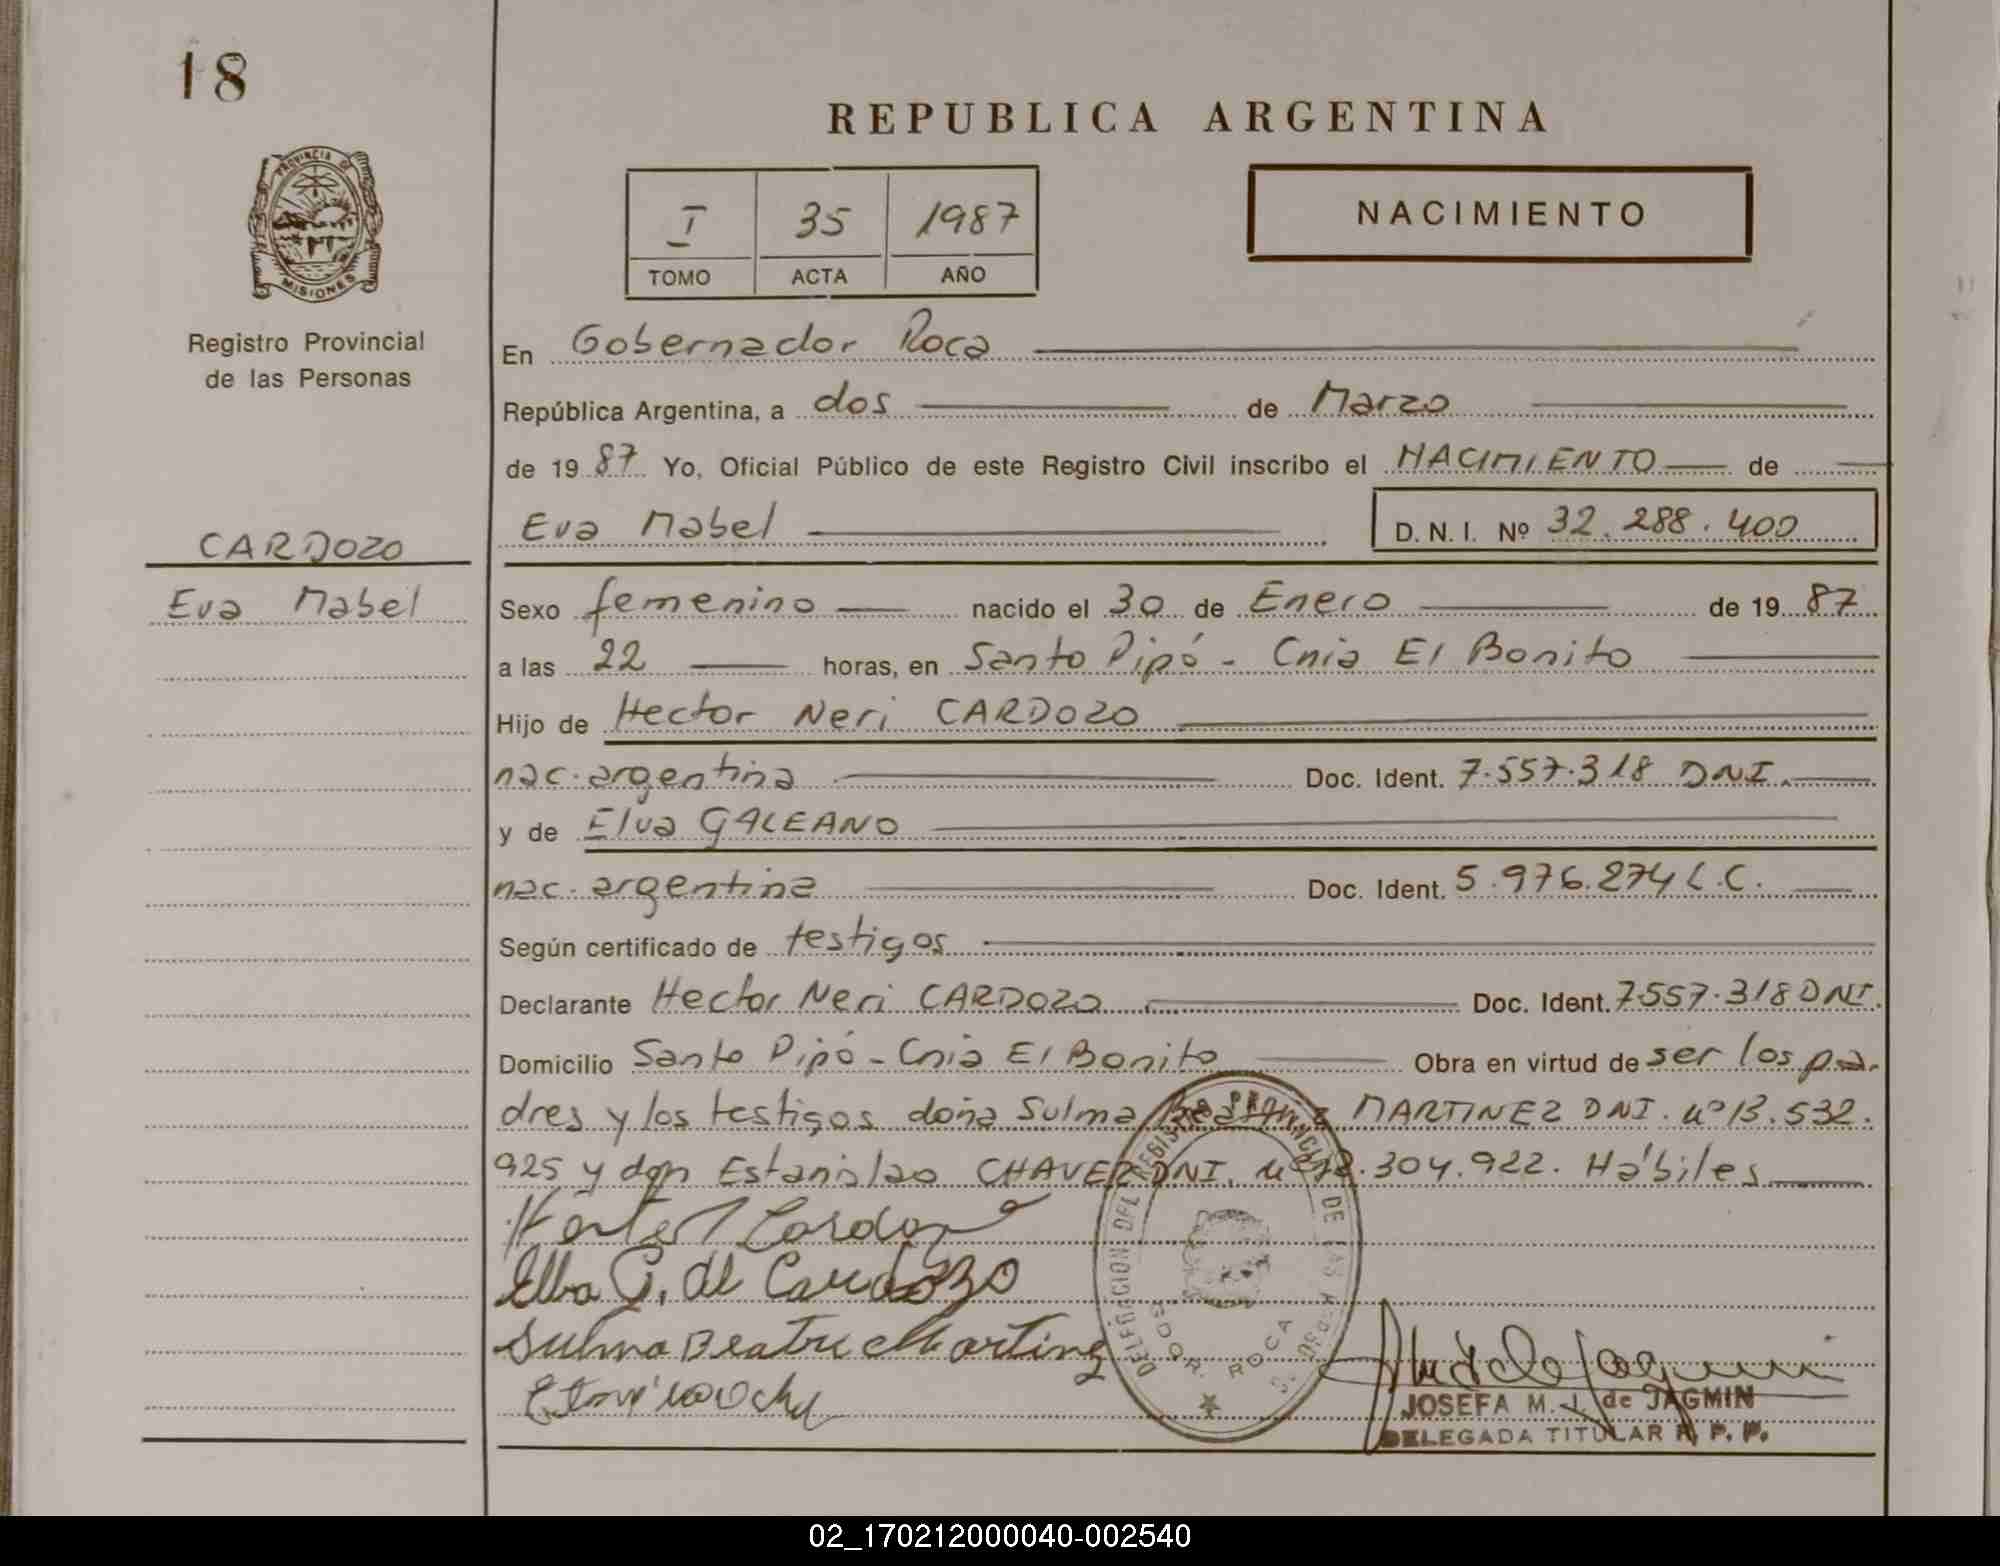 18
REPUBLICA ARGENTINA
PROVINCIA DE
MISIONES
Registro Provincial
de las Personas
I 35 1987
TOMO ACTA AÑO
NACIMIENTO
En Gobernador Roca
República Argentina, a dos de Marzo
de 1987 Yo, Oficial Público de este Registro Civil inscribo el NACIMIENTO de
CARDOZO
Eva Mabel
Eva Mabel D.N.I. Nº 32.288.400
Sexo femenino nacido el 30 de Enero de 1987
a las 22 horas, en Santo Pipó - Cnia El Bonito
Hijo de Hector Neri CARDOZO
nac. argentina Doc. Ident. 7.557.318 DNI.
y de Elva GALEANO
nac. argentina Doc. Ident. 5.976.274 L.C.
Según certificado de testigos
Declarante Hector Neri CARDOZO Doc. Ident. 7557.318 DNI.
Domicilio Santo Pipó - Cnia El Bonito Obra en virtud de ser los pa-
dres y los testigos doña Sulma Beatriz MARTINEZ DNI. nº 13.532.
925 y don Estanislao CHAVEZ DNI. nº .304.922. Hábiles
Cardozo
Elba G. de Cardozo
Sulma Beatriz Martinez
DELEGACION DEL REGISTRO PROVINCIAL DE LAS PERSONAS
GDOR. ROCA
JOSEFA M. J. de JAGMIN
DELEGADA TITULAR R. P. P.
02_170212000040-002540